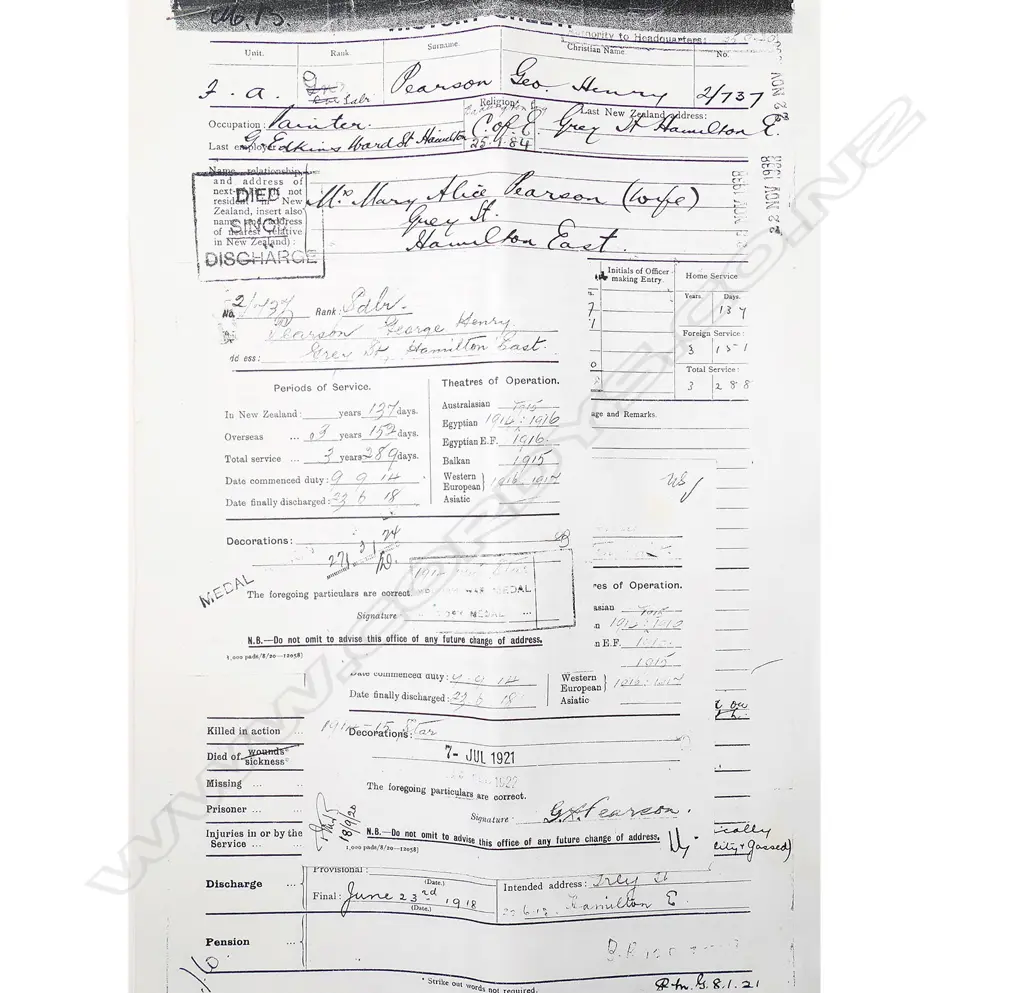 Authority to Headquarters:
Unit. Rank Surname. Christian Name No.
F. A. Sdlr Pearson Geo. Henry 2/737
Occupation: Painter. Religion: C. of E. Last New Zealand address: Grey St Hamilton E.
Last employer G. Edkins Ward St Hamilton 25.1.84
Name, relationship,
and address of
next-of-kin (if not
resident in New
Zealand, insert also
name and address
of nearest relative
in New Zealand):
Mrs Mary Alice Pearson (wife)
Grey St.
Hamilton East.
DIED
SINCE
DISCHARGE
22 NOV 1938
Initials of Officer making Entry. Home Service
Years. Days.
137
Foreign Service:
3 151
Total Service:
3 288
No. 2/737 Rank: Sdlr.
Pearson George Henry.
Address: Grey St, Hamilton East.
Periods of Service.
In New Zealand: years 137 days.
Overseas ... 3 years 152 days.
Total service ... 3 years 289 days.
Date commenced duty: 9 9 14
Date finally discharged: 23 6 18
Theatres of Operation.
Australasian 1915
Egyptian 1914:1916
Egyptian E.F. 1916.
Balkan 1915
Western European 1916 1917
Asiatic
age and Remarks.
Decorations:
MEDAL
The foregoing particulars are correct.
Signature
N.B.—Do not omit to advise this office of any future change of address.
1,000 pads/8/20—12058)
res of Operation.
asian
n
n E.F.
1915
Date commenced duty: 9 9 14
Date finally discharged: 23 6 18
Western European
Asiatic
Killed in action ...
Died of wounds sickness
Missing ...
Prisoner ...
Injuries in or by the
Service ...
1914-15 Star
Decorations:
7- JUL 1921
The foregoing particulars are correct.
Signature: G.H. Pearson.
18/9/20
N.B.—Do not omit to advise this office of any future change of address.
1,000 pads/8/20—12058)
ically
lity & Gassed)
Discharge ...
Provisional:
(Date.)
Final: June 23rd 1918
(Date.)
Intended address: Grey St
Hamilton E.
Pension ...
8.1.21
* Strike out words not required.
WWW.CORDYS.CO.NZ